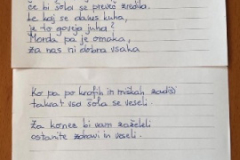 če bi šola se preveč zredila.
Le kaj se danes kuha,
je to goveja juha?
Morda pa je omaka,
za nas ni dobra vsaka.
Ko pa po krofih in miškah zadiši
takrat vsa šola se veseli.
Za konec bi vam zaželeli
ostanite zdravi in veseli.